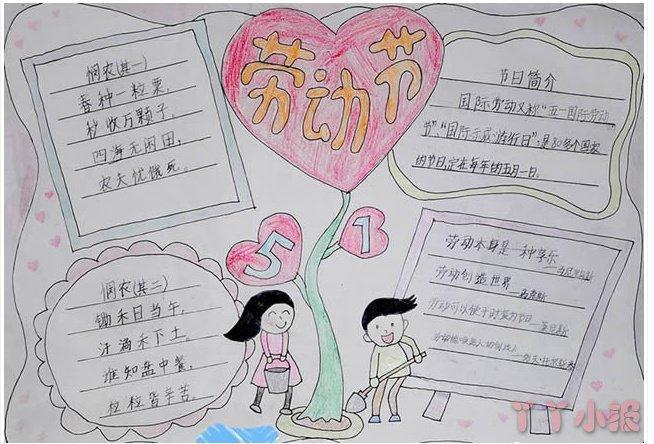 劳动节
5
1
悯农(其一)
春种一粒粟,
秋收万颗子,
四海无闲田,
农夫犹饿死。
节日简介
国际劳动又称“五一国际劳动
节”、“国际示威游行日”,是80多个国家
的节日,定在每年的五月一日。
悯农(其二)
锄禾日当午,
汗滴禾下土。
谁知盘中餐,
粒粒皆辛苦。
劳动本身是一种享乐
劳动创造世界——马克思
劳动可以使
丫丫小报